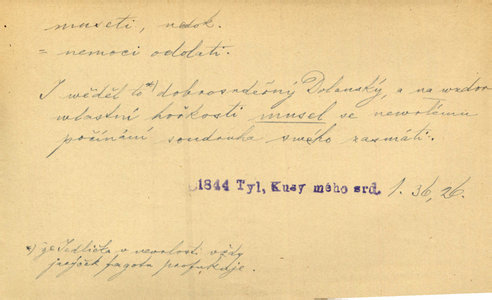 museti, nedok.
= nemoci odolati.
I wěděl to*) dobrosrdečný Dolanský, a na wzdor
wlastní hořkosti musel se newolému
počínání soudruha swého zasmáti.
1844 Tyl, Kusy mého srd. 1. 36, 26.
*) že Jedlička v nevolosti vždy
jazýček fagotu profukuje.